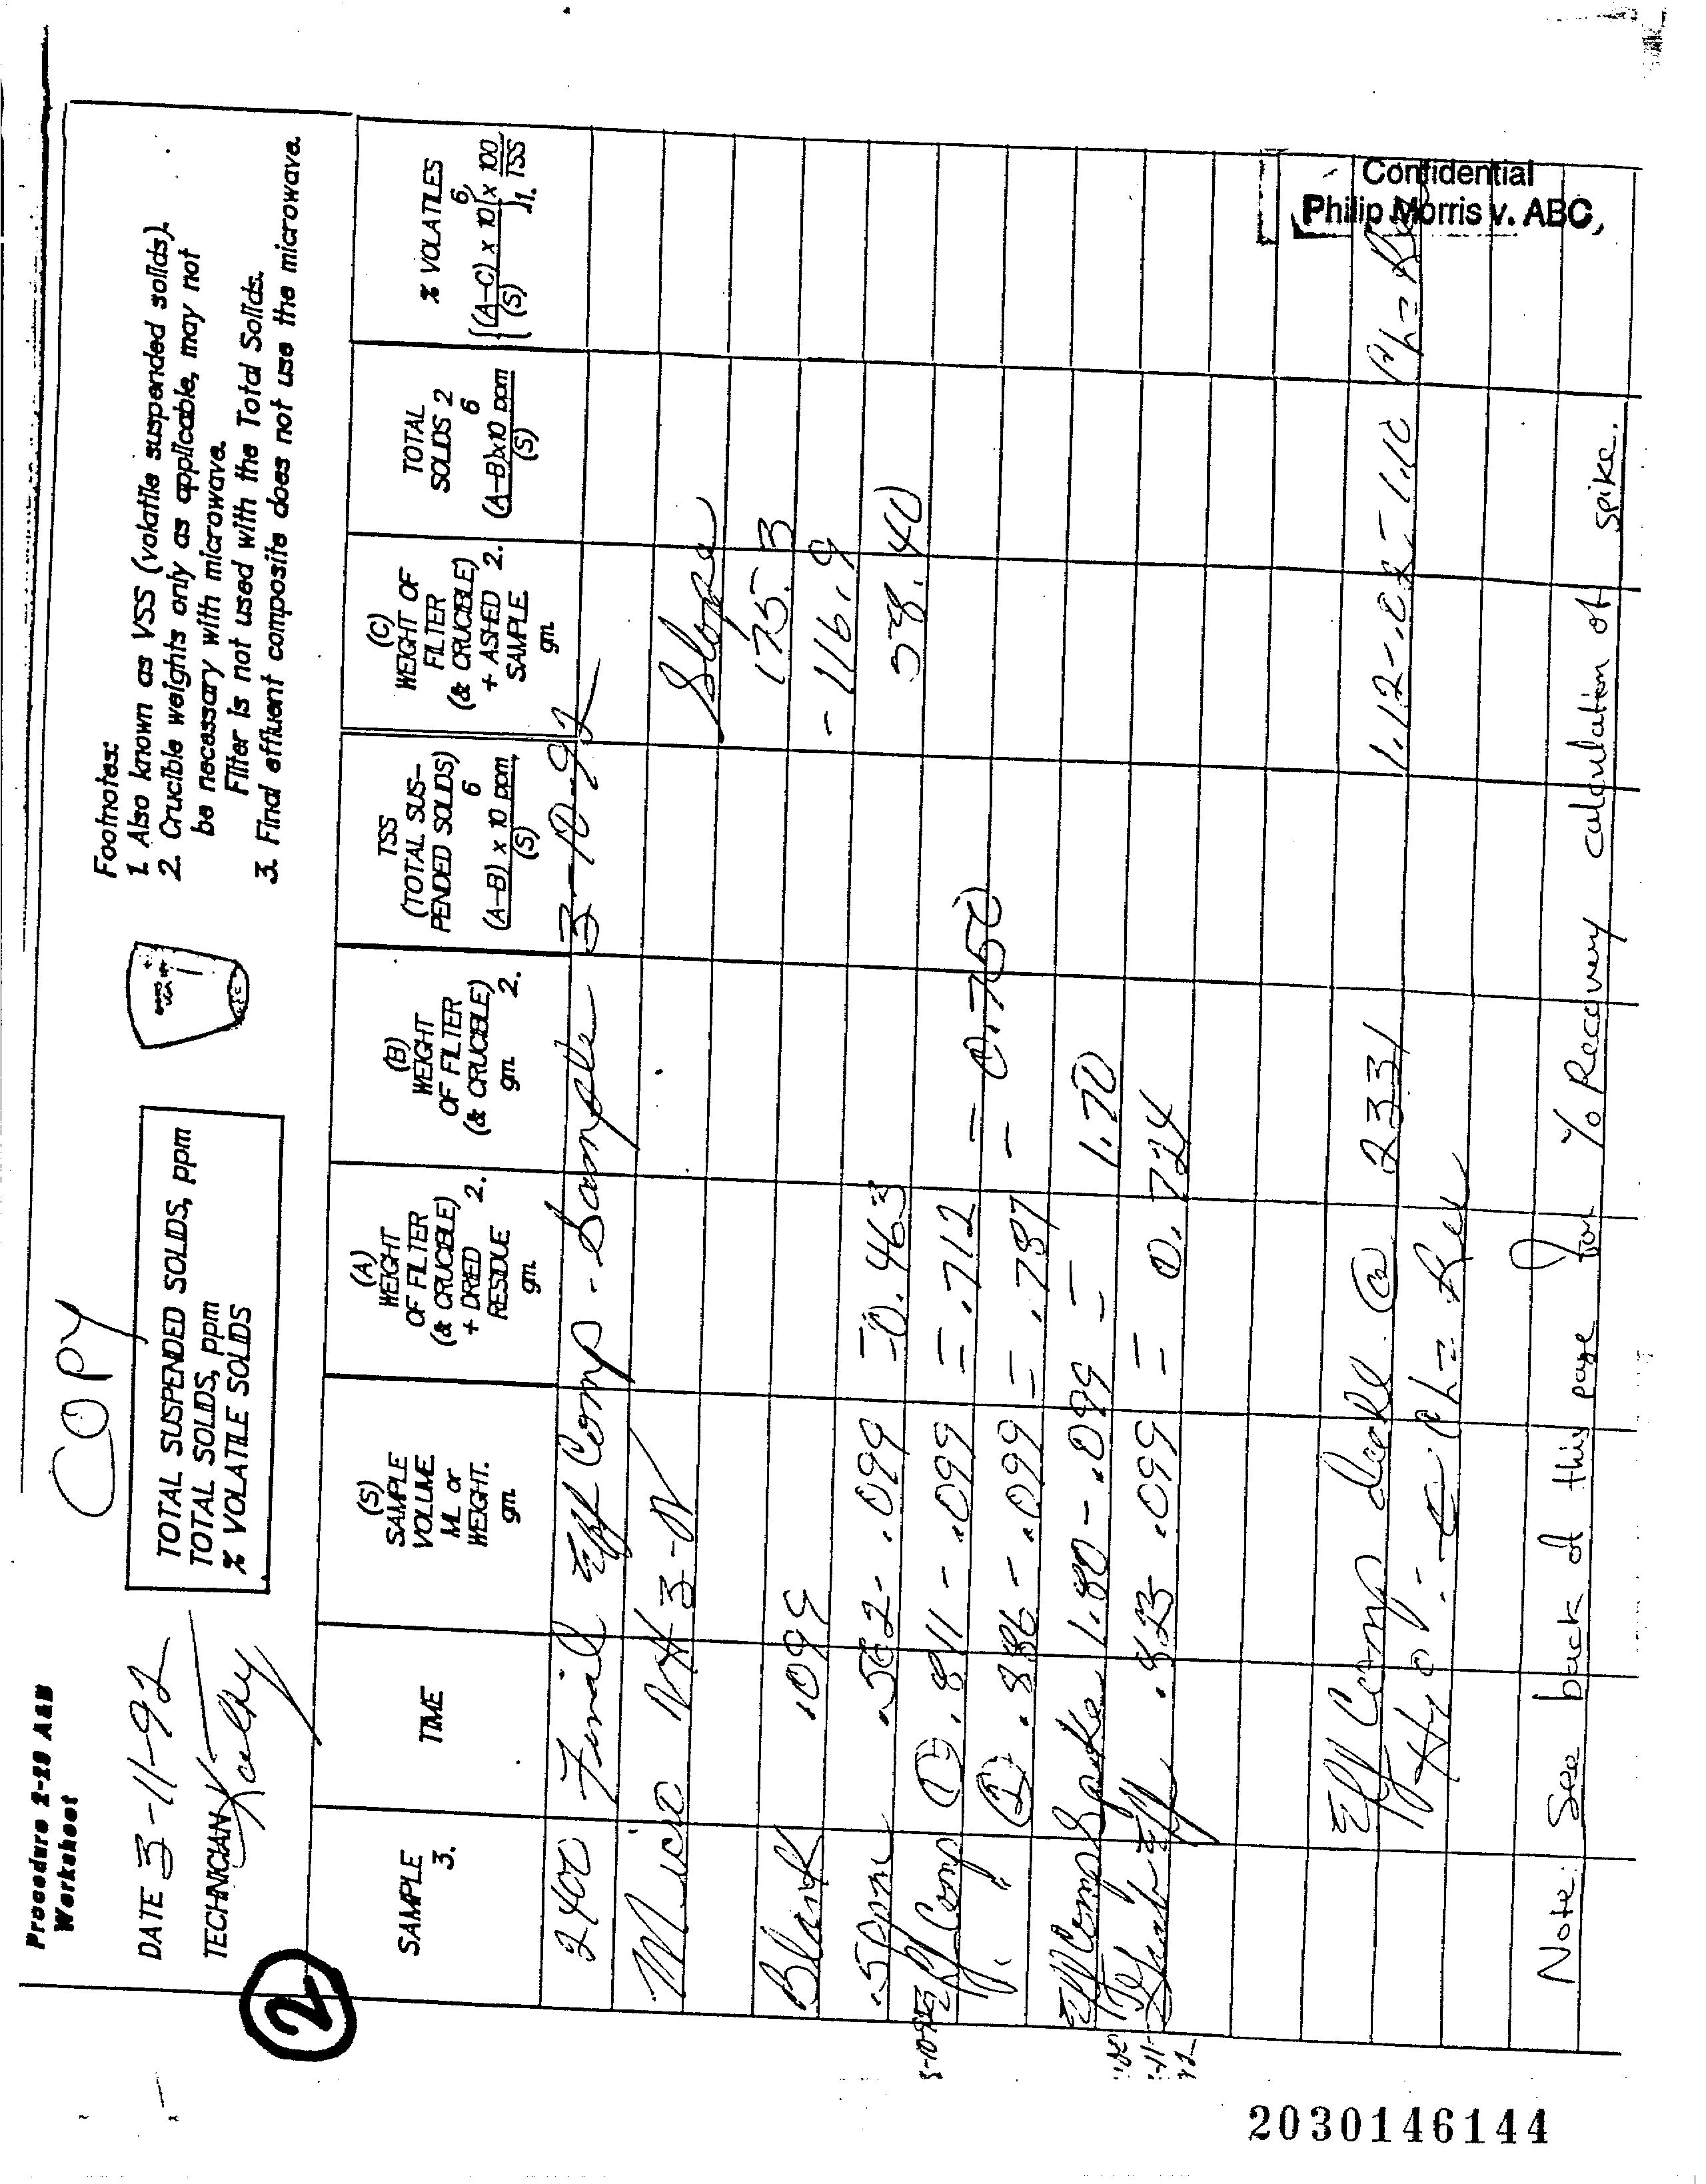 Procedure 2-20 A&B
Worksheet
COPY
DATE 3-11-92
TECHNICIAN Kathy
TOTAL SUSPENDED SOLIDS, ppm
TOTAL SOLIDS, ppm
% VOLATILE SOLIDS
Footnotes:
1. Also known as VSS (volatile suspended solids).
2. Crucible weights only as applicable, may not
be necessary with microwave.
Filter is not used with the Total Solids.
3. Final effluent composite does not use the microwave.
2
SAMPLE 3.
TIME
(S)
SAMPLE
VOLUME
ML or
WEIGHT.
gm
(A)
WEIGHT
OF FILTER
(& CRUCIBLE) 2.
+ DRIED
RESIDUE
gm
(B)
WEIGHT
OF FILTER
(& CRUCIBLE) 2.
gm
TSS
(TOTAL SUS-
PENDED SOLIDS)
(A-B) x 10 6 ppm
(S)
(C)
WEIGHT OF
FILTER
(& CRUCIBLE)
+ ASHED 2.
SAMPLE
gm
TOTAL
SOLIDS 2
(A-B)x10 6 ppm
(S)
% VOLATILES
{(A-C) x 10 6} x 100
(S) 1. TSS
2400 Final Eff Comp - Sample 3-10-92
Micro NH3-N
Slope
Blank .099
175.3
-116.9
.5ppm .562-.099 =0.463
58.40
3-10-92 Eff Comp ① .811-.099 = .712 = 0.750
" ② .886-.099 = .787 -
Eff Comp Spike 1.80-.099 = 1.70
.823-.099 = 0.724
Eff Comp @ 2331 1.12-.02=1.10
Note: See back of this page for % Recovery calculation of spike.
Confidential
Philip Morris v. ABC,
2030146144